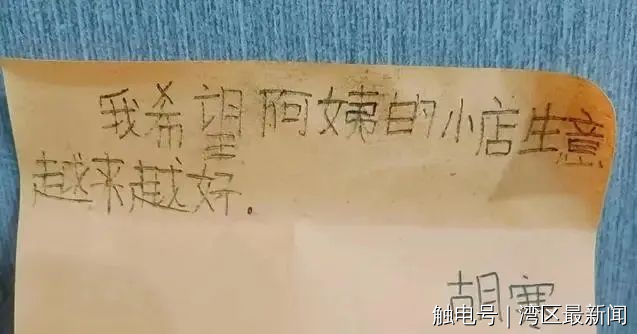 我希望阿姨的小店生意
越来越好.
胡寒
触电号|湾区最新闻